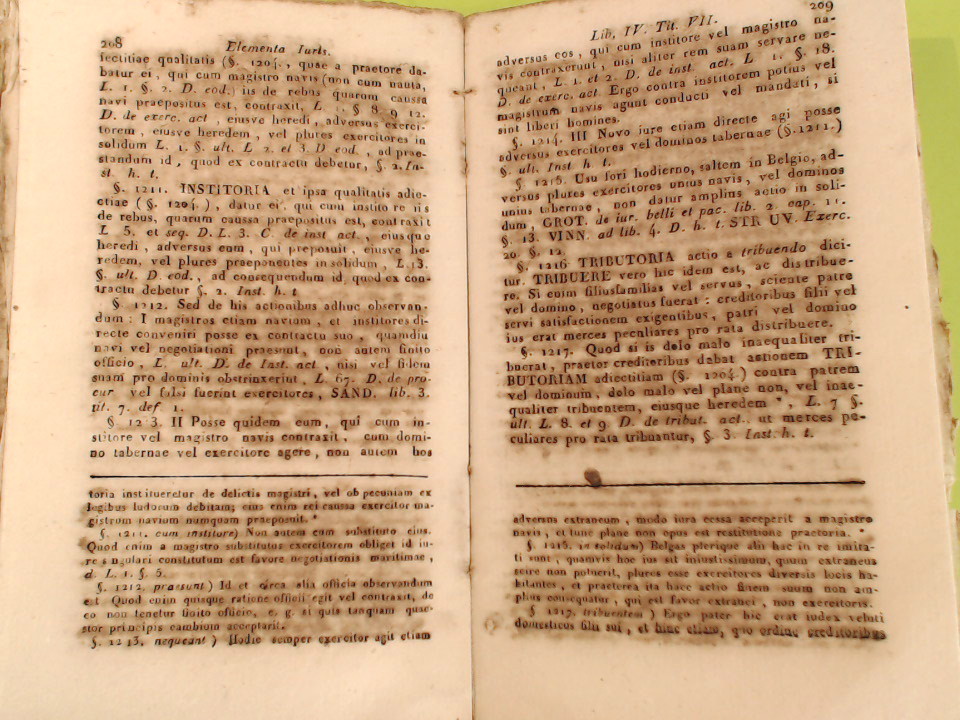 208
Elementa Iuris.
iectitiae qualitatis (§. 1204., quae a praetore da-
batur ei, qui cum magistro navis (non cum nauta,
L. 1. §. 2. D. eod.) iis de rebus quarum caussa
navi praepositus est, contraxit, L. 1. § 8. 9 12.
D. de exerc. act, eiusve heredi, adversus exerci-
torem, eiusve heredem, vel plures exercitores in
solidum L. 1. §. ult. L 2. et 3. D eod., ad prae-
standum id, quod ex contractu debetur, §. 2. In-
st. h. t.
§. 1211. INSTITORIA et ipsa qualitatis adie-
ctiae (§. 1204.), datur ei, qui cum institore iis
de rebus, quarum caussa praepositus est, contraxit
L 5. et seq. D. L. 3. C. de inst act., eiusque
heredi, adversus eum, qui preposuit, eiusve he-
redem, vel plures praeponentes in solidum, L. 13.
§. ult. D. eod., ad consequendum id quod ex con-
tractu debetur §. 2. Inst. h. t
§. 1212. Sed de his actionibus adhuc observan-
dum: I magistros etiam navium, et institores di-
recte conveniri posse ex contractu suo, quamdiu
navi vel negotiationi praesunt, non autem finito
officio, L. ult. D. de Inst. act, nisi vel fidem
suam pro dominis obstrinxerint, L. 67. D. de pro-
cur vel falsi fuerint exercitores, SAND. lib. 3.
tit. 7. def 1.
§ 12 3. II Posse quidem eum, qui cum in-
stitore vel magistro navis contraxit, cum domi-
no tabernae vel exercitore agere, non autem hos
toria institueretur de delictis magistri, vel ob pecuniam ex
legibus ludorum debitam; eius enim rei caussa exercitor ma-
gistrum navium numquam praeposuit. *
§. 1211. cum institore) Non autem cum substituto eius.
Quod enim a magistro substitutus exercitorem obliget id iu-
re singulari constitutum est favore negotiationis maritimae,
d. L. 1. §. 5.
§. 1212. praesunt) Id et circa alia officia observandum
est Quod enim quisque ratione officii egit vel contraxit, de
eo non tenetur finito officio, e. g. si quis tanquam quae-
stor principis cambium acceptarit.
§. 1213. nequeant) Hodie semper exercitor agit etiam
209
Lib. IV. Tit. VII.
adversus eos, qui cum institore vel magistro na-
vis contraxerunt, nisi aliter rem suam servare ne-
queant, L 1. et 2. D. de inst. act. L 1. §. 18.
D. de exerc. act Ergo contra institorem potius vel
magistrum navis agunt conducti vel mandati, si
sint liberi homines.
§. 1214. III Novo iure etiam directe agi posse
adversus exercitores vel dominos tabernae (§. 1211.)
§. ult. Inst h. t.
§. 1215. Usu fori hodierno, saltem in Belgio, ad-
versus plures exercitores unius navis, vel dominos
unius tabernae, non datur amplius actio in soli-
dum, GROT. de iur. belli et pac. lib. 2. cap. 11.
§. 13. VINN. ad lib. 4. D. h. t. STRUV. Exerc.
20. §. 12
§. 1216 TRIBUTORIA actio a tribuendo dici-
tur. TRIBUERE vero hic idem est, ac distribue-
re. Si enim filiusfamilias vel servus, sciente patre
vel domino, negotiatus fuerat: creditoribus filii vel
servi satisfactionem exigentibus, patri vel domino
ius erat merces peculiares pro rata distribuere.
§. 1217. Quod si is dolo malo inaequaliter tri-
buerat, praetor creditoribus dabat actionem TRI-
BUTORIAM adiectitiam (§. 1204.) contra patrem
vel dominum, dolo malo vel plane non, vel inae-
qualiter tribuentem, eiusque heredem *, L. 7 §.
ult. L. 8. et 9. D. de tribut. act.. ut merces pe-
culiares pro rata tribuantur, §. 3. Inst. h. t.
adversus extraneum, modo iura cessa acceperit a magistro
navis, et tunc plane non opus est restitutione praetoria. *
§. 1215. in solidum) Belgas plerique alii hac in re imita-
ti sunt, quamvis hoc ius sit iniustissimum, quum extraneus
scire non poterit, plures esse exercitores diversis locis ha-
bitantes, et praeterea ita haec actio finem suum non am-
plius consequatur, qui est favor extranei, non exercitoris.
§ 1217. tribuentem) Ergo pater hic erat iudex veluti
domesticus filii sui, et hinc etiam, quo ordine creditoribus